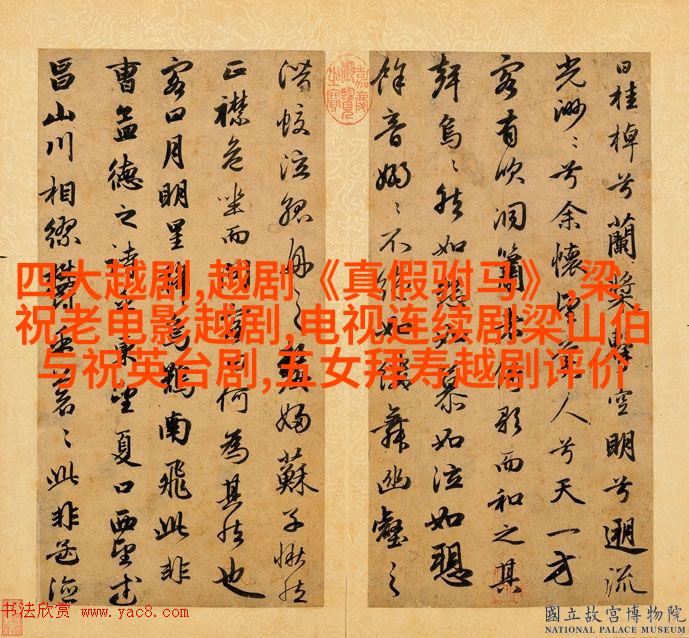 曰桂棹兮蘭槳擊空明兮遡流
光渺〻兮余懷望美人兮天一方
客有吹洞簫者倚歌而和之其
聲烏〻然如怨如慕如泣如訴
餘音嫋〻不絕如縷舞幽壑之
潛蛟泣孤舟之嫠婦蘇子愀然
正襟危坐而問客曰何為其然也
客曰月明星稀烏鵲南飛此非
曹孟德之詩乎東望夏口西望武
昌山川相繆鬱乎蒼〻此非孟德
四大越剧,越剧《真假驸马》,梁
祝老电影越剧,电视连续剧梁山伯
与祝英台剧,五女拜寿越剧评价
书法欣赏 www.yac8.com
國立故宮博物院
NATIONAL PALACE MUSEUM